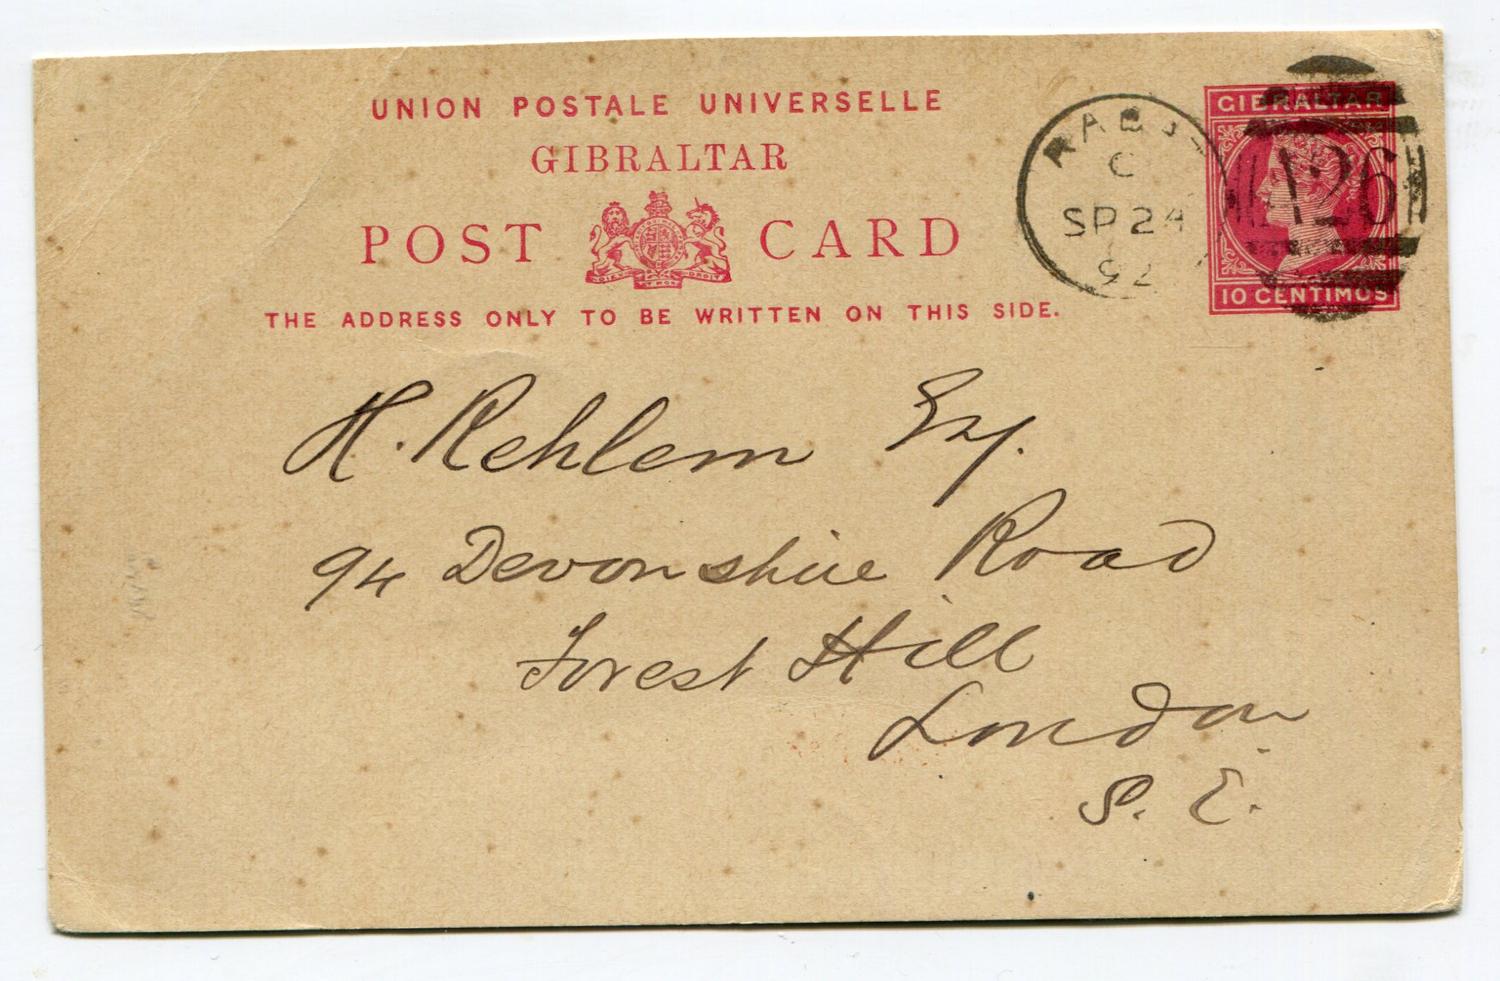 UNION POSTALE UNIVERSELLE
GIBRALTAR
POST CARD
THE ADDRESS ONLY TO BE WRITTEN ON THIS SIDE.
RABAT
C
SP 24
92
A26
GIBRALTAR
10 CENTIMOS
H. Rehlem Esq.
94 Devonshire Road
Forest Hill
London
S. E.